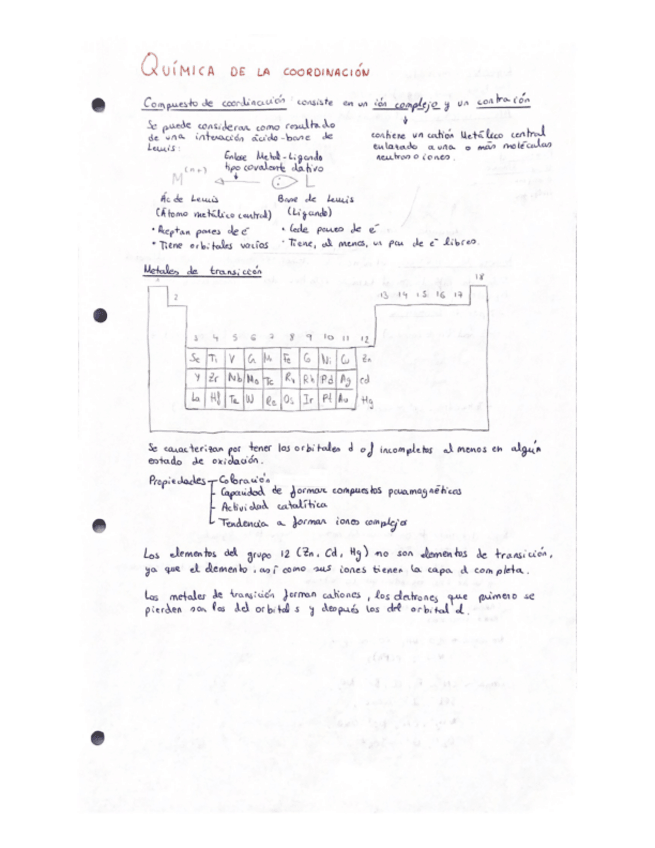 QUÍMICA DE LA COORDINACIÓN
Compuesto de coordinación: consiste en un ión complejo y un contraión
Se puede considerar como resultado
de una interacción ácido-base de
Lewis:
contiene un catión Metálico central
enlazado a una o más moléculas
neutras o iones.
Enlace Metal-Ligando
tipo covalente dativo
M (n+) L
Ác de Lewis Base de Lewis
(Átomo metálico central) (Ligando)
• Aceptan pares de e⁻ • Cede pares de e⁻
• Tiene orbitales vacíos • Tiene, al menos, un par de e⁻ libres
Metales de transición
18
2 13 14 15 16 17
3 4 5 6 7 8 9 10 11 12
Sc Ti V Cr Mn Fe Co Ni Cu Zn
Y Zr Nb Mo Tc Ru Rh Pd Ag Cd
La Hf Ta W Re Os Ir Pt Au Hg
Se caracterizan por tener los orbitales d o f incompletos al menos en algún
estado de oxidación.
Propiedades Coloración
Capacidad de formar compuestos paramagnéticos
Actividad catalítica
Tendencia a formar iones complejos
Los elementos del grupo 12 (Zn, Cd, Hg) no son elementos de transición,
ya que el elemento, así como sus iones tienen la capa d completa.
Los metales de transición forman cationes, los electrones que primero se
pierden son los del orbital s y después los del orbital d.